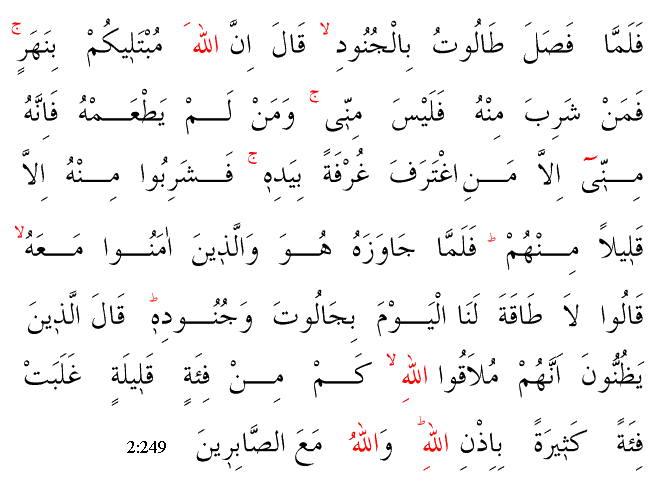 فَلَمَّا فَصَلَ طَالُوتُ بِالْجُنُودِ ۙ قَالَ اِنَّ اللهَ مُبْتَلٖيكُمْ بِنَهَرٍ ۚ
فَمَنْ شَرِبَ مِنْهُ فَلَيْسَ مِنّٖى ۚ وَمَنْ لَمْ يَطْعَمْهُ فَاِنَّهُ
مِنّٖىٓ اِلاَّ مَنِ اغْتَرَفَ غُرْفَةً بِيَدِهٖ ۚ فَشَرِبُوا مِنْهُ اِلاَّ
قَلٖيلاً مِنْهُمْ ؕ فَلَمَّا جَاوَزَهُ هُوَ وَالَّذٖينَ اٰمَنُوا مَعَهُ ۙ
قَالُوا لاَ طَاقَةَ لَنَا الْيَوْمَ بِجَالُوتَ وَجُنُودِهٖ ؕ قَالَ الَّذٖينَ
يَظُنُّونَ اَنَّهُمْ مُلاَقُوا اللهِ ۙ كَمْ مِنْ فِئَةٍ قَلٖيلَةٍ غَلَبَتْ
فِئَةً كَثٖيرَةً بِاِذْنِ اللهِ ؕ وَاللهُ مَعَ الصَّابِرٖينَ 2:249